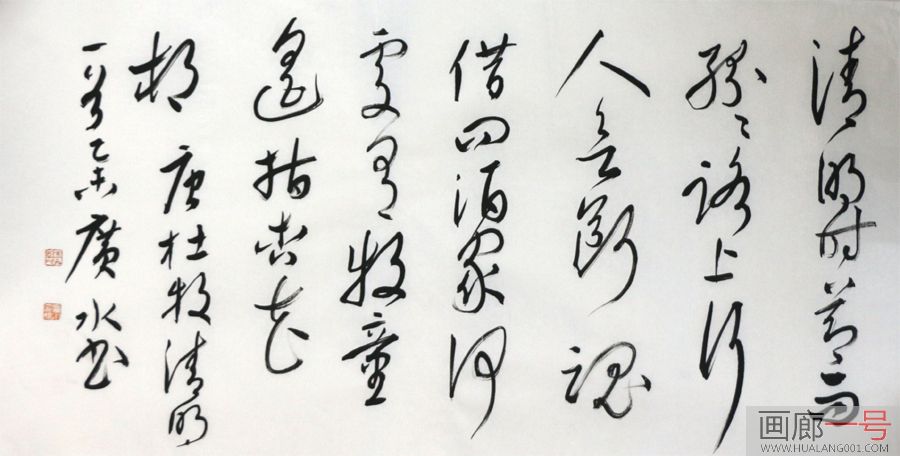 清明时節雨
纷纷路上行
人欲断魂
借问酒家何
處有牧童
遥指杏花
村 唐杜牧清明
一首乙未廣水书
画廊一号
WWW.HUALANG001.COM